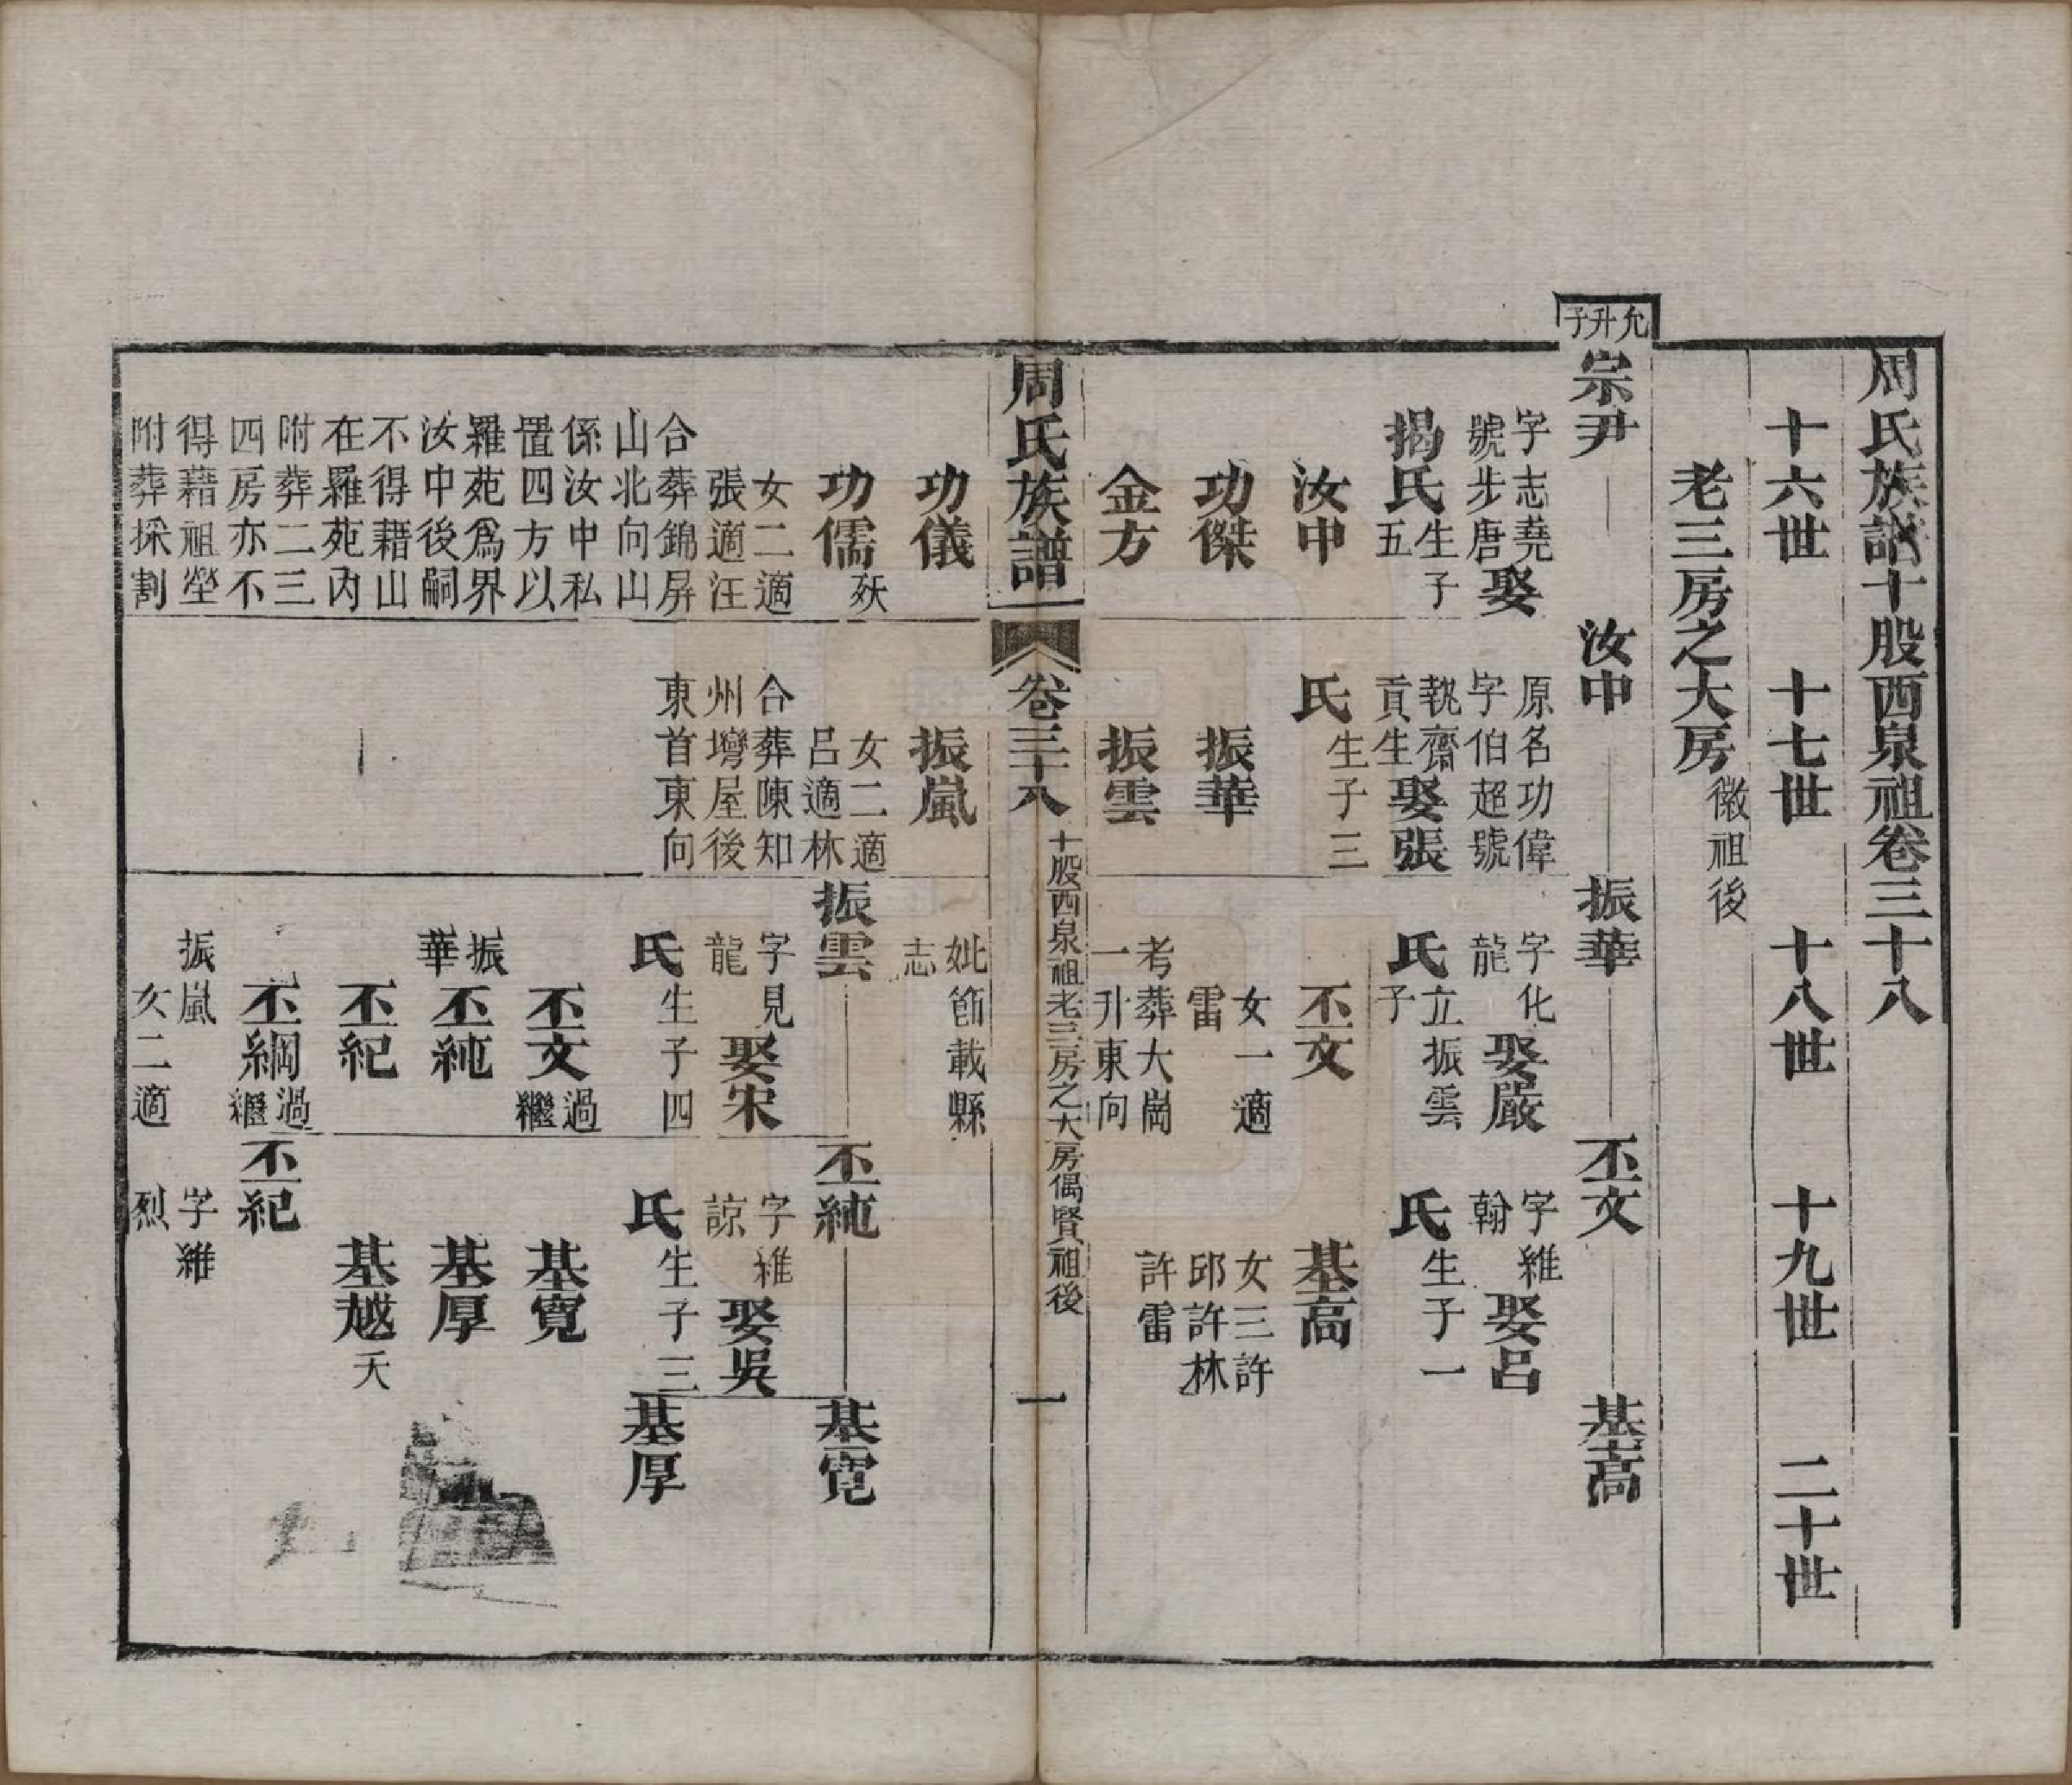 周氏族譜十股西泉祖卷三十八
十六世 十七世 十八世 十九世 二十世
老三房之大房 徽祖後
允升子
宗尹 汝中 振華 丕文 基高
字志堯
號步唐娶
揭氏生子
五
汝中
功傑
金方
原名功偉
字伯超號
執齋
貢生娶張
氏生子三
振華
振雲
字化
龍 娶嚴
氏立振雲
子
丕文
女一適
雷
考葬大崗
一升東向
字維
翰 娶呂
氏生子一
基高
女三許
邱許林
許雷
周氏族譜 卷三十八 十股西泉祖老三房之大房偶賢祖後 一
功儀
功儒 殀
女二適
張適汪
合葬錦屏
山北向山
係汝中私
置四方以
羅苑為界
汝中後嗣
不得藉山
在羅苑內
附葬二三
四房亦不
得藉祖塋
附葬採劃
振嵐
女二適
呂適林
合葬陳知
州壪屋後
東首東向
妣節載縣
志
振雲 丕純 基寬
字見
龍 娶宋
氏生子四
丕文 過繼
振華
丕純
丕紀
丕綱 過繼
振嵐
女二適
字維
諒 娶吳
氏生子三
基厚
基寬
基厚
基越 夭
丕紀
字維
烈